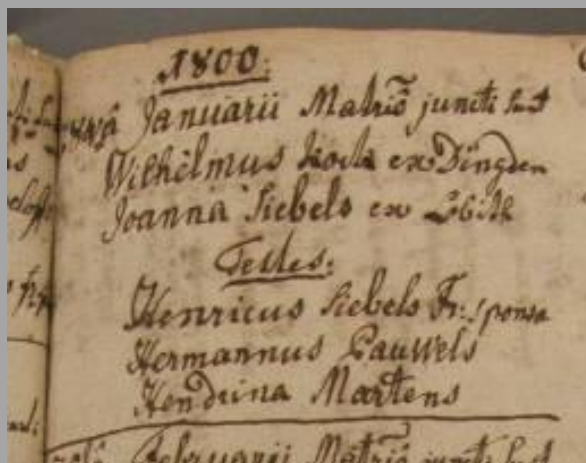 1800:
Januarii Matriō juncti sunt
Wilhelmus ex Dingden
Joanna Siebels ex Lobith
Testes:
Henricus Siebels Fr: sponsa
Hermannus Pauwels
Hendrina Martens
Februarii Matriō juncti sunt